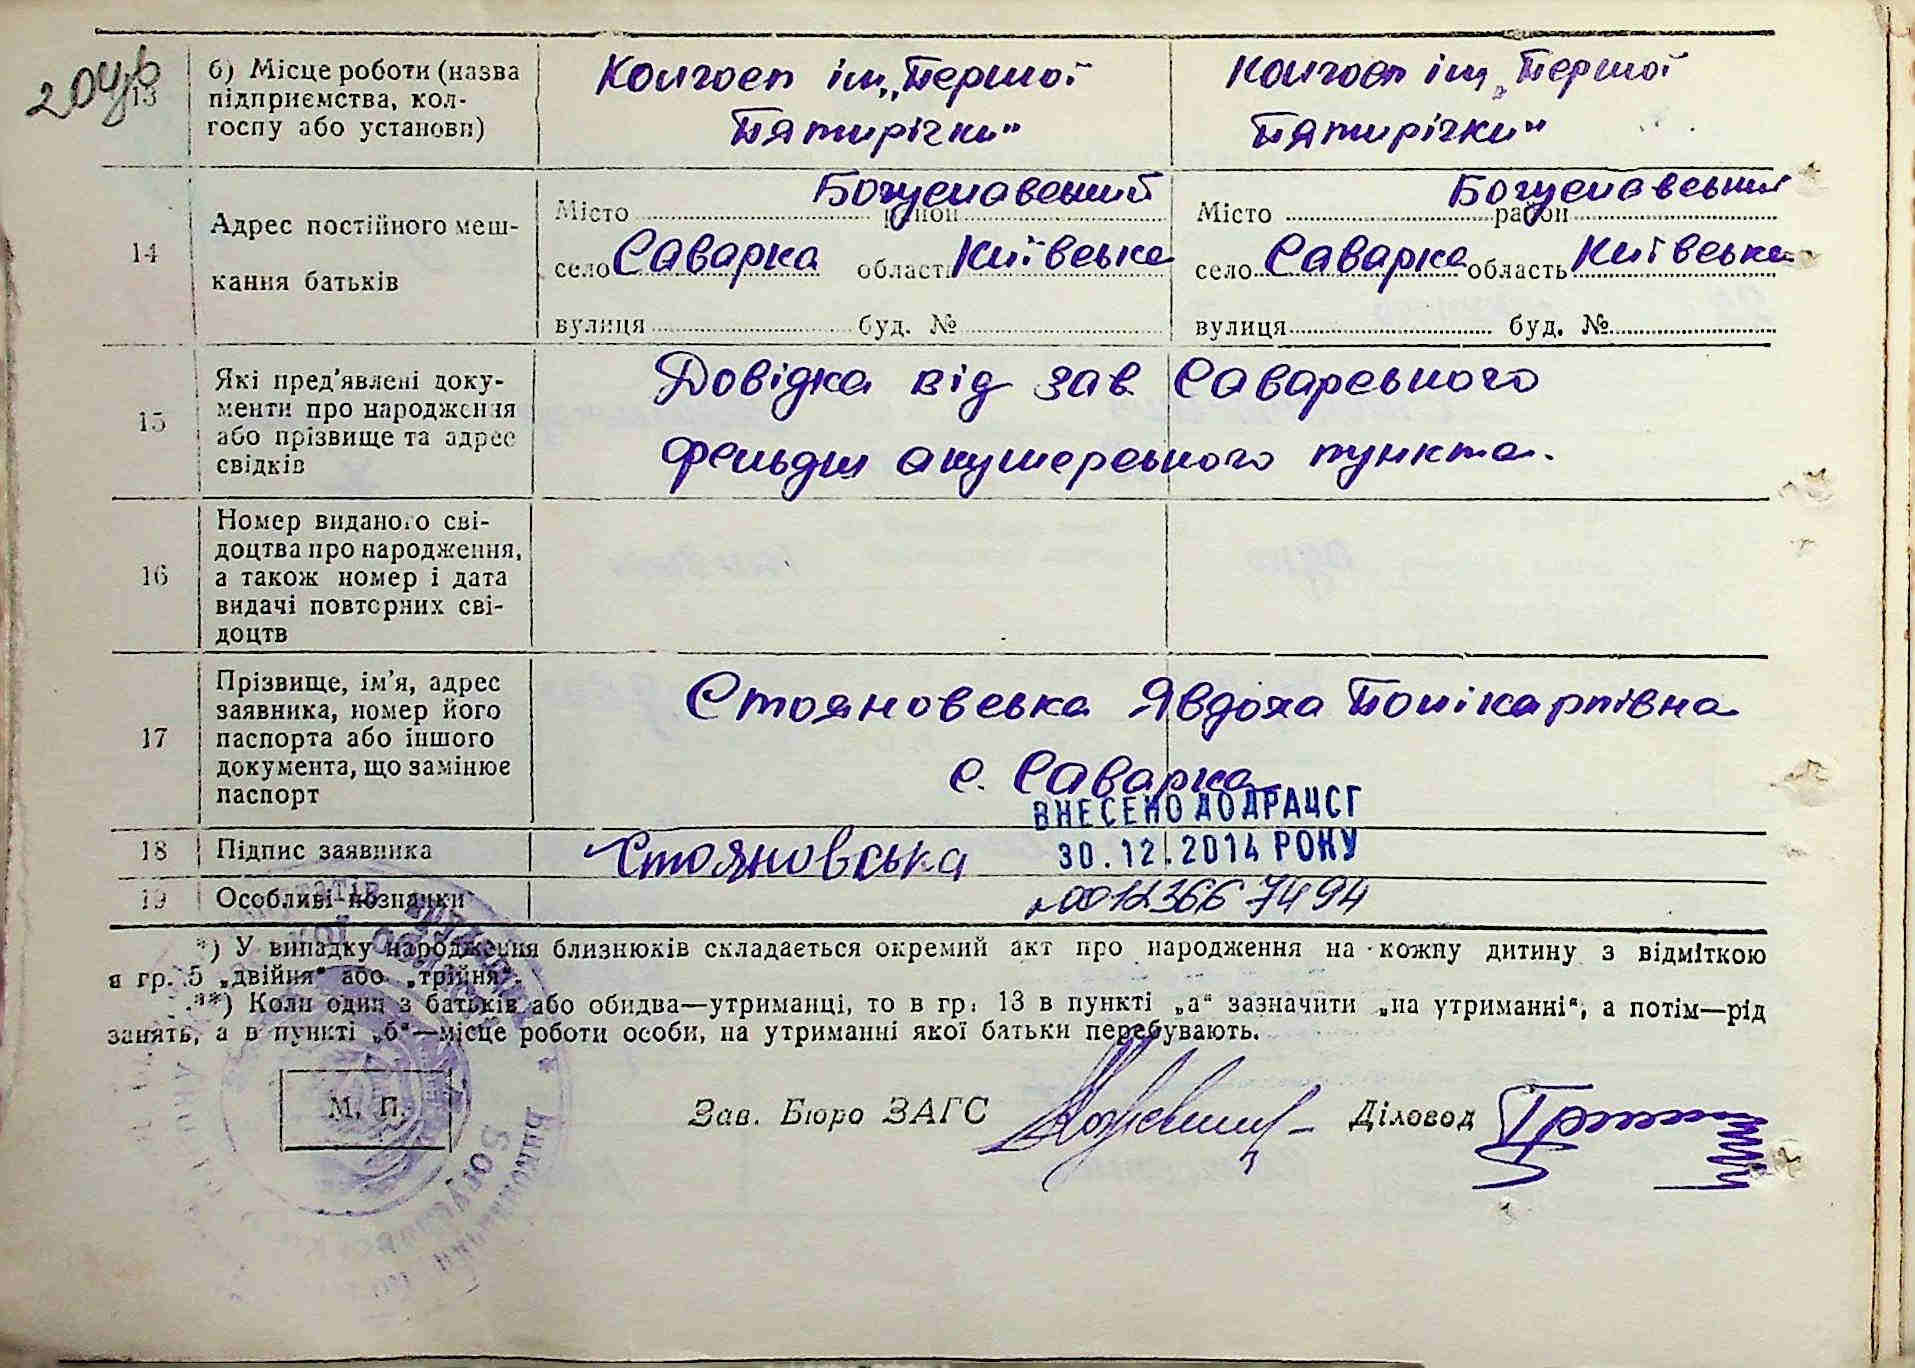 204
13
б) Місце роботи (назва
підприємства, кол-
госпу або установи)
Колгосп ім „Першої
Пятирічки"
Колгосп ім „Першої
Пятирічки"
14
Адрес постійного меш-
кання батьків
Місто район Богуславський
село Саварка область Київська
вулиця буд. №
Місто район Богуславський
село Саварка область Київська
вулиця буд. №
15
Які пред'явлені доку-
менти про народження
або прізвище та адрес
свідків
Довідка від зав Саварського
фельдш акушерського пункта.
16
Номер виданого сві-
доцтва про народження,
а також номер і дата
видачі повторних сві-
доцтв
17
Прізвище, ім'я, адрес
заявника, номер його
паспорта або іншого
документа, що замінює
паспорт
Стояновська Явдоха Полікарпівна
с. Саварка
ВНЕСЕНО ДО ДРАЦСГ
30.12.2014 РОКУ
18
Підпис заявника
Стояновська
19
Особливі позначки
00123667494
*) У випадку народження близнюків складається окремий акт про народження на кожну дитину з відміткою
в гр. 5 „двійня" або „трійня".
**) Коли один з батьків або обидва—утриманці, то в гр. 13 в пункті „а" зазначити „на утриманні", а потім—рід
занять, а в пункті „б"—місце роботи особи, на утриманні якої батьки перебувають.
М. П.
Зав. Бюро ЗАГС
Діловод